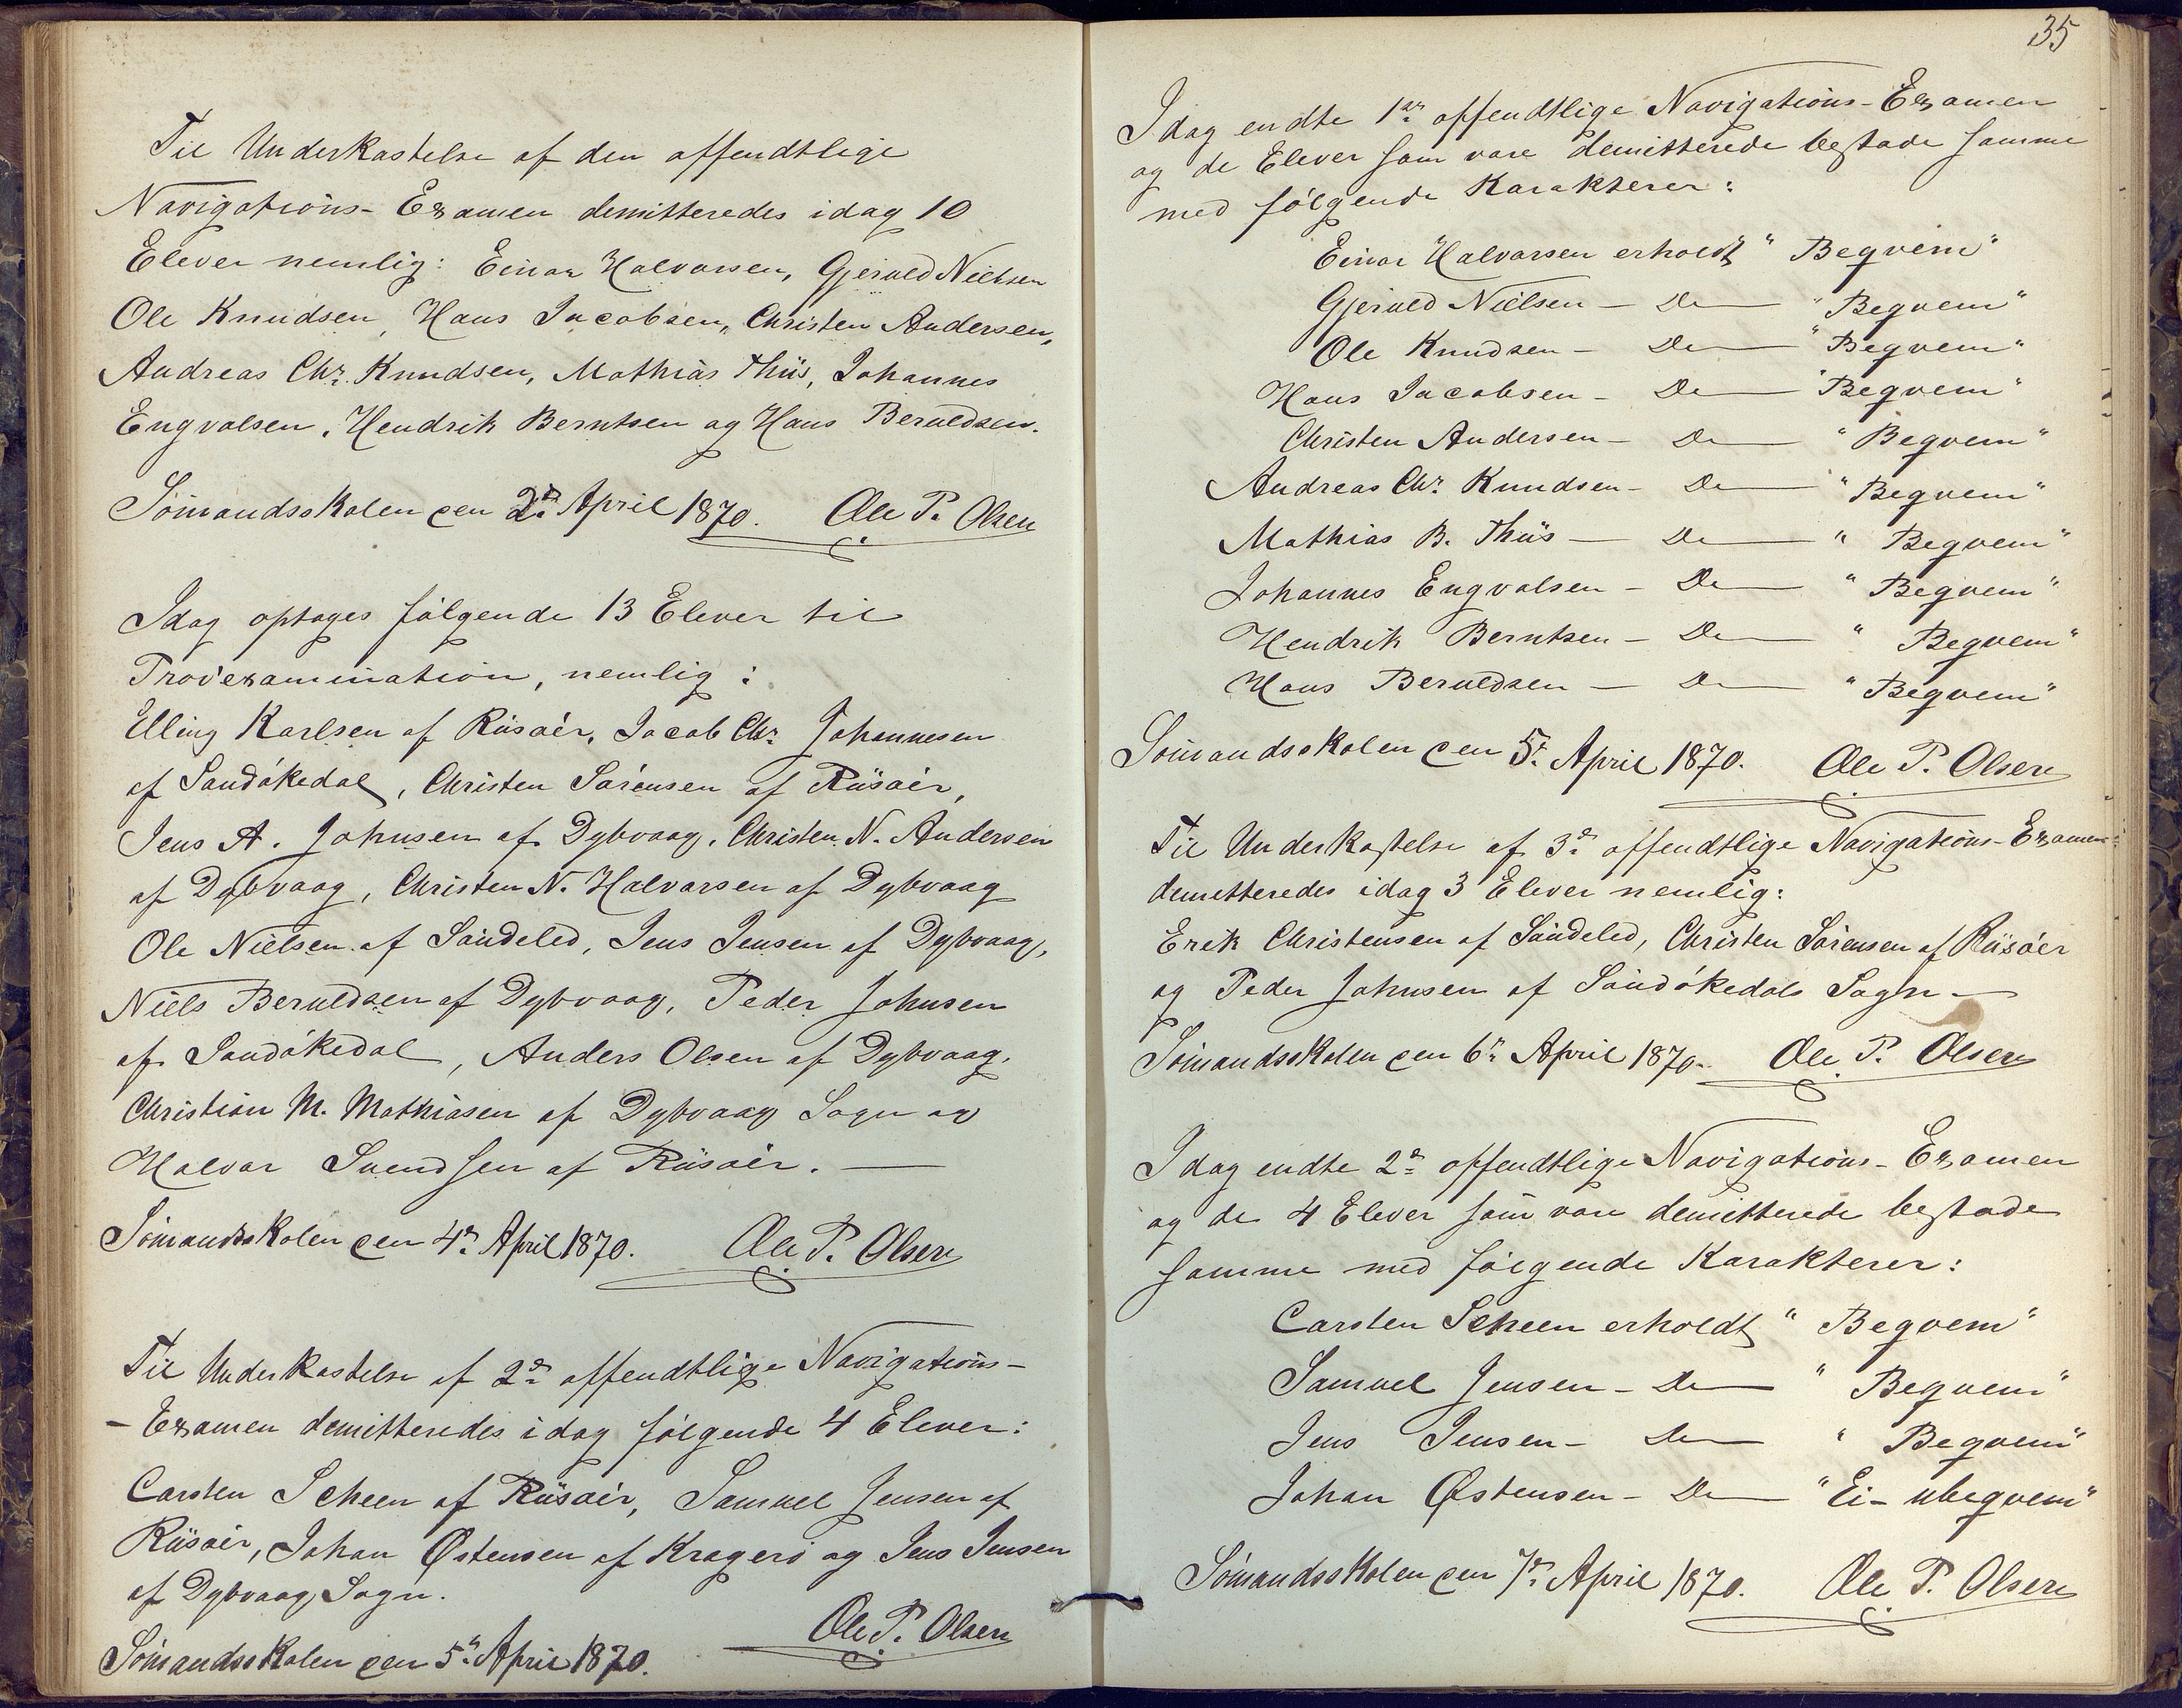 Til Underkastelse af den offendtlige
Navigations-Examen demitteredes idag 10
Elever nemlig: Einar Halvorsen, Gjeruld Nielsen
Ole Knudsen, Hans Jacobsen, Christen Andersen,
Andreas Chr. Knudsen, Mathias Thiis, Johannes
Engvalsen, Hendrik Berntsen og Hans Beruldsen.
Sömandsskolen den 2n April 1870. Ole P. Olsen
Idag optoges følgende 13 Elever til
Pröv'examination, nemlig:
Elling Karlsen af Riisöer, Jacob Chr. Johannesen
af Sandökedal, Christen Sørensen af Riisöer,
Jens A. Johnsen af Dybvaag, Christen N. Andersen
af Dybvaag, Christen N. Halvorsen af Dybvaag
Ole Nielsen af Söndeled, Jens Jensen af Dybvaag,
Niels Beruldsen af Dybvaag, Peder Johnsen
af Sandökedal, Anders Olsen af Dybvaag,
Christian M. Mathiasen af Dybvaag Sogn og
Halvor Svendsen af Riisöer. —
Sömandsskolen den 4n April 1870. Ole P. Olsen
Til Underkastelse af 2n offendtlige Navigations-
- Examen demitteredes idag følgende 4 Elever:
Carsten Scheen af Riisöer, Samuel Jensen af
Riisöer, Johan Østensen af Kragerö og Jens Jensen
af Dybvaag Sogn.
Ole P. Olsen
Sömandsskolen den 5n April 1870.
35
Idag endte 1n offendtlige Navigations-Examen
og de Elever som vare demitterede bestode samme
med følgende Karakterer:
Einar Halvorsen erholdt "Begvem"
Gjeruld Nielsen - Do — "Begvem"
Ole Knudsen - Do — "Begvem"
Hans Jacobsen - Do — "Begvem"
Christen Andersen - Do — "Begvem"
Andreas Chr. Knudsen - Do — "Begvem"
Mathias B. Thiis — Do — "Begvem"
Johannes Engvalsen - Do — "Begvem"
Hendrik Berntsen - Do — "Begvem"
Hans Beruldsen — Do — "Begvem"
Sömandsskolen den 5n April 1870. Ole P. Olsen
Til Underkastelse af 3n offendtlige Navigations-Examen
demitteredes idag 3 Elever nemlig:
Erik Christensen af Söndeled, Christen Sørensen af Riisöer
og Peder Johnsen af Sandökedals Sogn —
Sömandsskolen den 6n April 1870. Ole P. Olsen
Idag endte 2n offendtlige Navigations-Examen
og de 4 Elever som vare demitterede bestode
samme med følgende Karakterer:
Carsten Scheen erholdt "Begvem"
Samuel Jensen - Do — "Begvem"
Jens Jensen - Do — "Begvem"
Johan Østensen - Do — "Ei-ubegvem"
Sömandsskolen den 7n April 1870. Ole P. Olsen